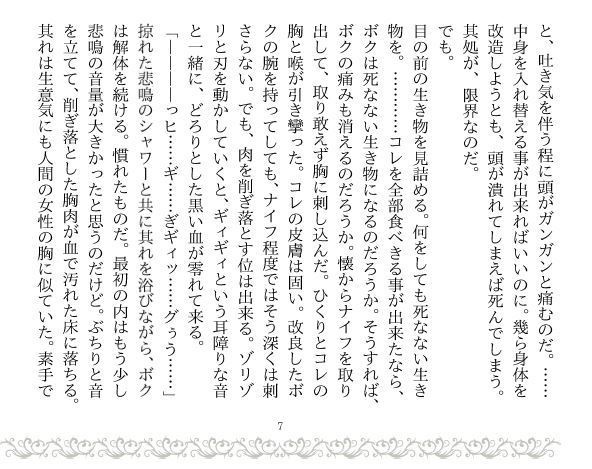 と、吐き気を伴う程に頭がガンガンと痛むのだ。……
中身を入れ替える事が出来ればいいのに。幾ら身体を
改造しようとも、頭が潰れてしまえば死んでしまう。
其処が、限界なのだ。
でも。
目の前の生き物を見詰める。何をしても死なない生き
物を。…………コレを全部食べきる事が出来たなら、
ボクは死なない生き物になるのだろうか。そうすれば、
ボクの痛みも消えるのだろうか。懐からナイフを取り
出して、取り敢えず胸に刺し込んだ。ひくりとコレの
胸と喉が引き攣った。コレの皮膚は固い。改良したボ
クの腕を持ってしても、ナイフ程度ではそう深くは刺
さらない。でも、肉を削ぎ落とす位は出来る。ゾリゾ
リと刃を動かしていくと、ギィギィという耳障りな音
と一緒に、どろりとした黒い血が零れて来る。
「――――っヒ……ギ……ぎギィッ……グぅう……」
掠れた悲鳴のシャワーと共に其れを浴びながら、ボク
は解体を続ける。慣れたものだ。最初の内はもう少し
悲鳴の音量が大きかったと思うのだけど。ぶちりと音
を立てて、削ぎ落とした胸肉が血で汚れた床に落ちる。
其れは生意気にも人間の女性の胸に似ていた。素手で
7